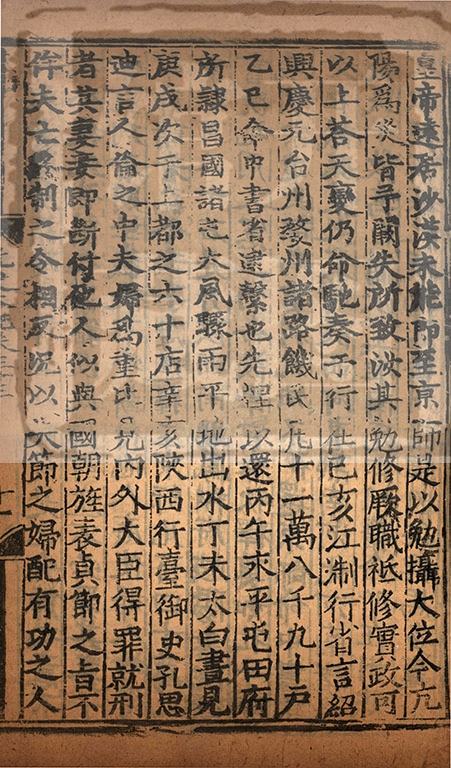 皇帝遠居沙漠未能卽至京師是以勉攝大位今亢
陽爲災皆予闕失所致汝其勉修厥職祗修實政可
以上荅天變仍命馳奏于行在己亥江浙行省言紹
興慶元台州婺州諸路饑民凡十一萬八千九十戶
乙巳命中書省逮繫也先捏以還丙午永平屯田府
所隷昌國諸屯大風驟雨平地出水丁未太白晝見
庚戌次于上都之六十店辛亥陝西行臺御史孔思
迪言人倫之中夫婦爲重比見內外大臣得罪就刑
者其妻妾卽斷付他人似與國朝旌表貞節之旨不
侔夫亡終制之令相反況以失節之婦配有功之人